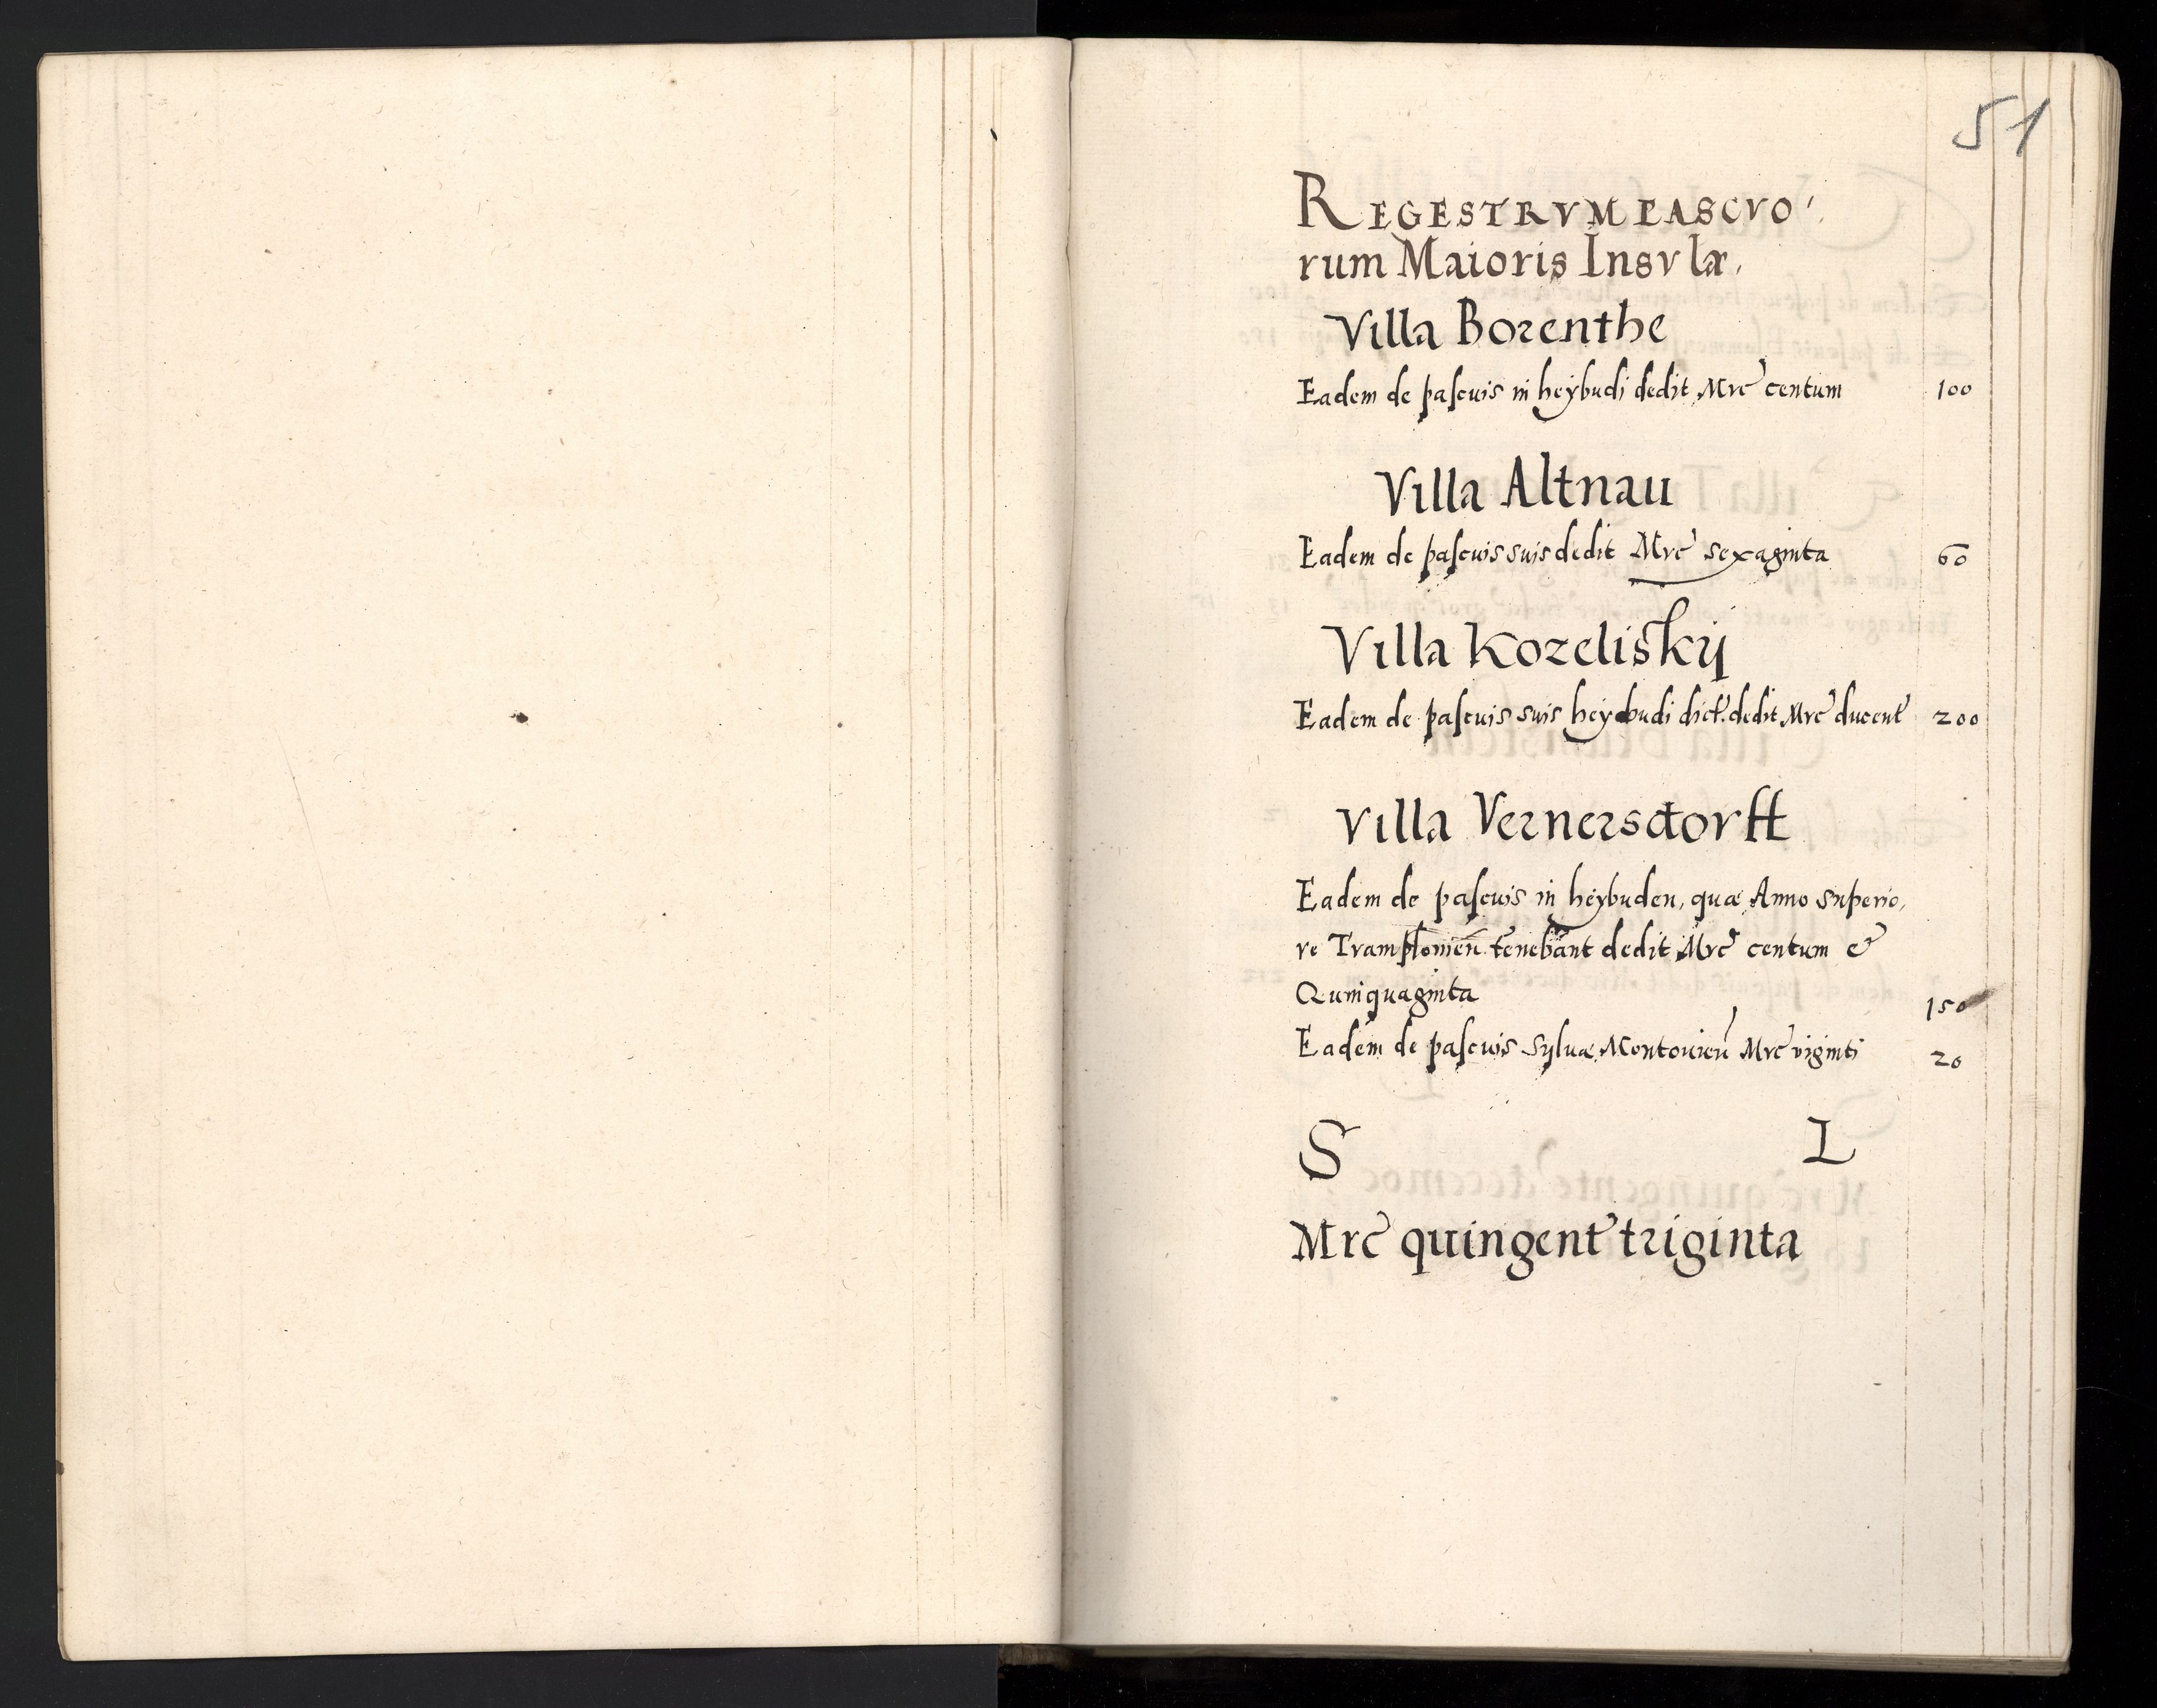 51
REGESTRVM PASCVO
rum Maioris Insvlæ,
Villa Borenthe
Eadem de pascuis in heÿbudi dedit Mrc centum 100
Villa Altnau
Eadem de pascuis suis dedit Mrc sexaginta 60
Villa Kozeliskij
Eadem de pascuis suis heÿbudi dict. dedit Mrc ducent 200
Villa Vernersdorff
Eadem de pascuis in heÿbuden, quæ Anno superio,
re Tramplonien̄ tenebant dedit Mrc centum &
Quinquaginta 150
Eadem de pascuis syluæ Montouien̄ Mrc viginti 20
S L
Mrc quingent triginta